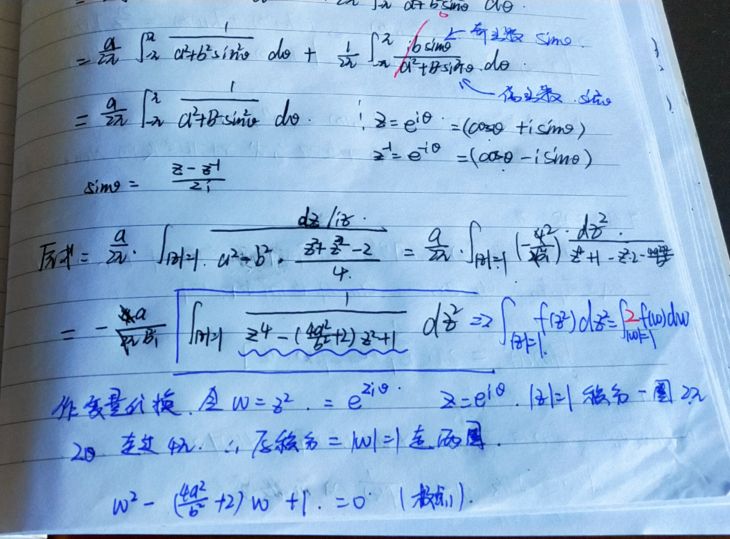 = a/2π ∫_{-π}^{π} 1/(a²+b²sin²θ) dθ + 1/2π ∫_{-π}^{π} ib sinθ/(a²+b²sin²θ) dθ ← 奇函数 sinθ
偶函数 sin²θ
= a/2π ∫_{-π}^{π} 1/(a²+b²sin²θ) dθ z = e^{iθ} = (cosθ + i sinθ)
z⁻¹ = e^{-iθ} = (cosθ − i sinθ)
sinθ = (z − z⁻¹)/2i
原式 = a/2π · ∫_{|z|=1} (dz/iz)/(a² − b² · (z²+z⁻²−2)/4) = a/2π · ∫_{|z|=1}
= − ∫_{|z|=1} 1/(z⁴ − (4a²/b²+2)z² + 1) dz² ⇒ ∫_{|z|=1} f(z²)dz² = ∫_{|w|=1} 2f(w)dw
作变量代换 令 w = z² = e^{2iθ} z = e^{iθ} |z|=1 积分一圈 2π
2θ 走过 4π ∴ 原积分 = |w|=1 走两圈
w² − (4a²/b²+2)w + 1 = 0